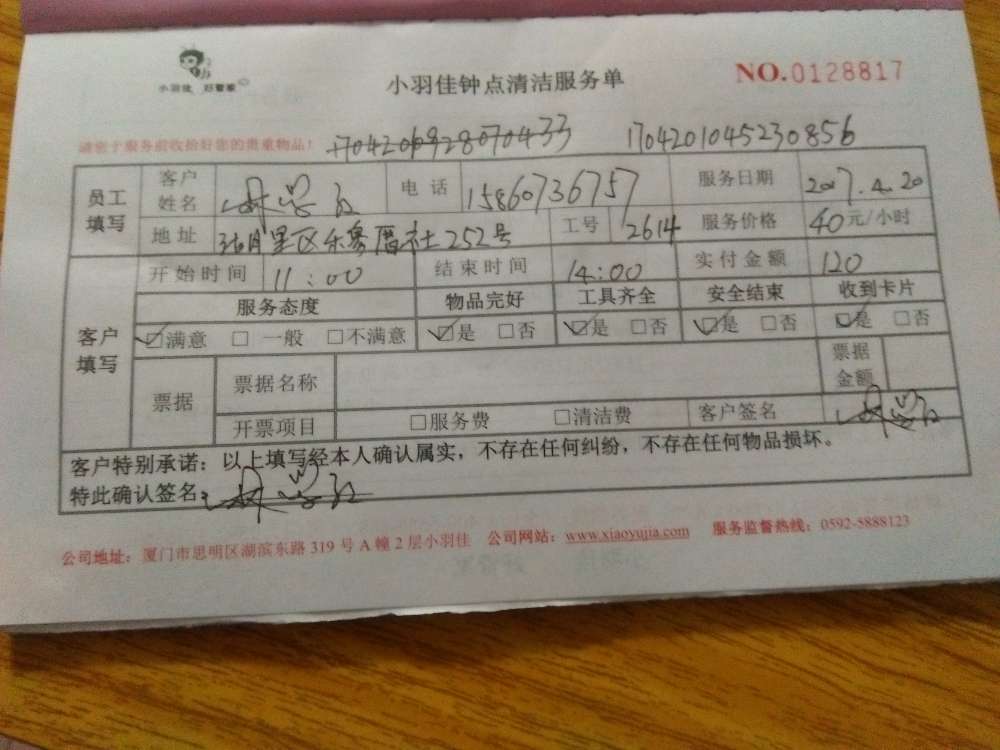 小羽佳 好管家
小羽佳钟点清洁服务单
NO.0128817
请您于服务前收拾好您的贵重物品!
1704206928070433 1704201045230856
员工填写 客户姓名 电话 15860736757 服务日期 2017.4.20
地址 252号 工号 2614 服务价格 40元/小时
客户填写 开始时间 11:00 结束时间 14:00 实付金额 120
服务态度 物品完好 工具齐全 安全结束 收到卡片
☑满意 □一般 □不满意 ☑是 □否 ☑是 □否 ☑是 □否 ☑是 □否
票据 票据名称 票据金额
开票项目 □服务费 □清洁费 客户签名
客户特别承诺:以上填写经本人确认属实,不存在任何纠纷,不存在任何物品损坏。
特此确认签名:
公司地址:厦门市思明区湖滨东路 319 号 A 幢 2 层小羽佳 公司网站:www.xiaoyujia.com 服务监督热线:0592-5888123